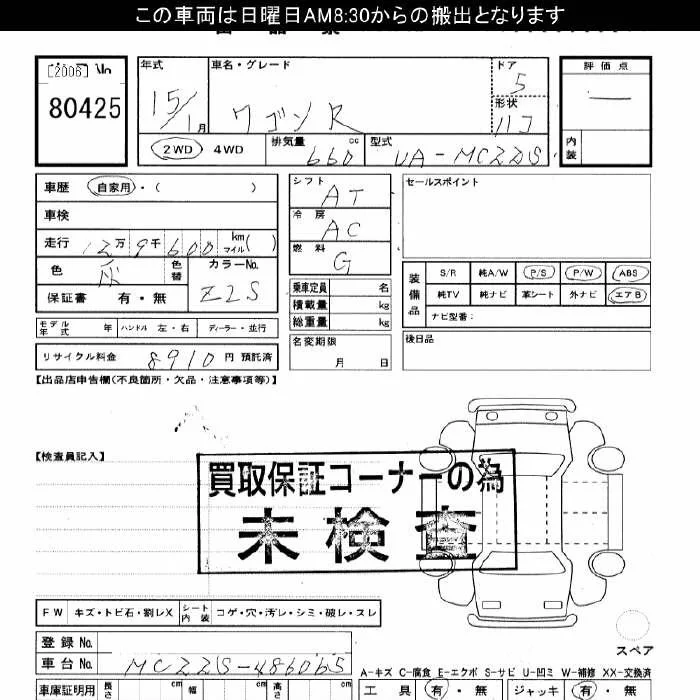 この車両は日曜日AM8:30からの搬出となります
[2006] No
80425
年式 15/1月
車名・グレード ワゴンR
ドア 5
形状 ハコ
評価点 —
内装
2WD 4WD
排気量 660 cc
型式 UA-MC22S
車歴 自家用・( )
車検
走行 12万9千600 km マイル( )
色 灰 色替
カラーNo. Z2S
保証書 有・無
モデル年式 年 ハンドル 左・右 ディーラー・並行
リサイクル料金 8910円 預託済
シフト AT
冷房 AC
燃料 G
乗車定員 名
積載量 kg
総重量 kg
名変期限 月 日
セールスポイント
装備品 S/R 純A/W P/S P/W ABS
純TV 純ナビ 革シート 外ナビ エアB
ナビ型番:
後日品
【出品店申告欄(不良箇所・欠品・注意事項等)】
【検査員記入】
買取保証コーナーの為
未検査
FW キズ・トビ石・割レX シート内装 コゲ・穴・汚レ・シミ・破レ・スレ
登録No.
車台No. MC22S-486065
車庫証明用 長さ cm 幅 cm 高さ cm
スペア
A-キズ C-腐食 E-エクボ S-サビ U-凹ミ W-補修 XX-交換済
工具 有・無 ジャッキ 有・無